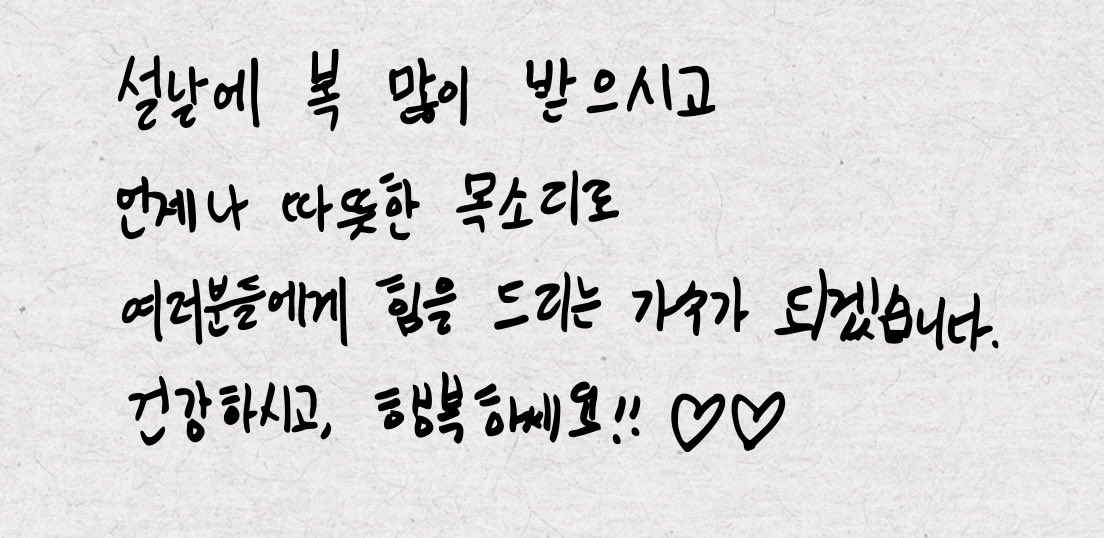 설날에 복 많이 받으시고
언제나 따뜻한 목소리로
여러분들에게 힘을 드리는 가수가 되겠습니다.
건강하시고, 행복하세요!! ♡♡